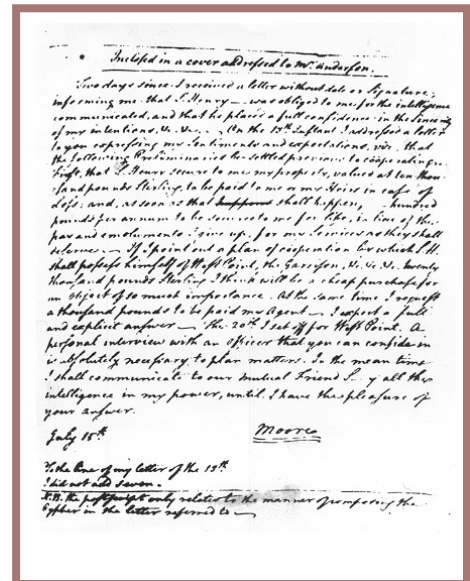 Inclosed in a cover addressed to Mr. Anderson.
Two days since I received a letter without date or Signature,
informing me that S. Henry — was obliged to me for the intelligence
communicated, and that he placed a full confidence in the Sincerity
of my intentions, &c. &c. — On the 13th Instant I addressed a letter
to you expressing my Sentiments and expectations, viz. that
the following Preliminaries be settled previous to cooperating —
First, that S. Henry secure to me my property, valued at ten thou-
sand pounds Sterling, to be paid to me or my Heirs in case of
Loss; and, as soon as that shall happen, hundred
pounds per annum to be secured to me for life, in lieu of the
pay and emoluments I give up, for my Services as they shall
deserve — If I point out a plan of cooperation by which S. H.
shall possess himself of West Point, the Garrison, &c. &c. &c. twenty
thousand pounds Sterling I think will be a cheap purchase for
an object of so much importance. At the same time I request
a thousand pounds to be paid my Agent — I expect a full
and explicit answer — The 20th I set off for West Point. A
personal interview with an officer that you can confide in
is absolutely necessary to plan matters. In the mean time
I shall communicate to our mutual Friend S—y all the
intelligence in my power, until I have the pleasure of
your answer.
July 15th
Moore
To the line of my letter of the 13th
I did not add seven.
N.B. the postscript only relates to the manner of composing the
Cypher in the letter referred to —